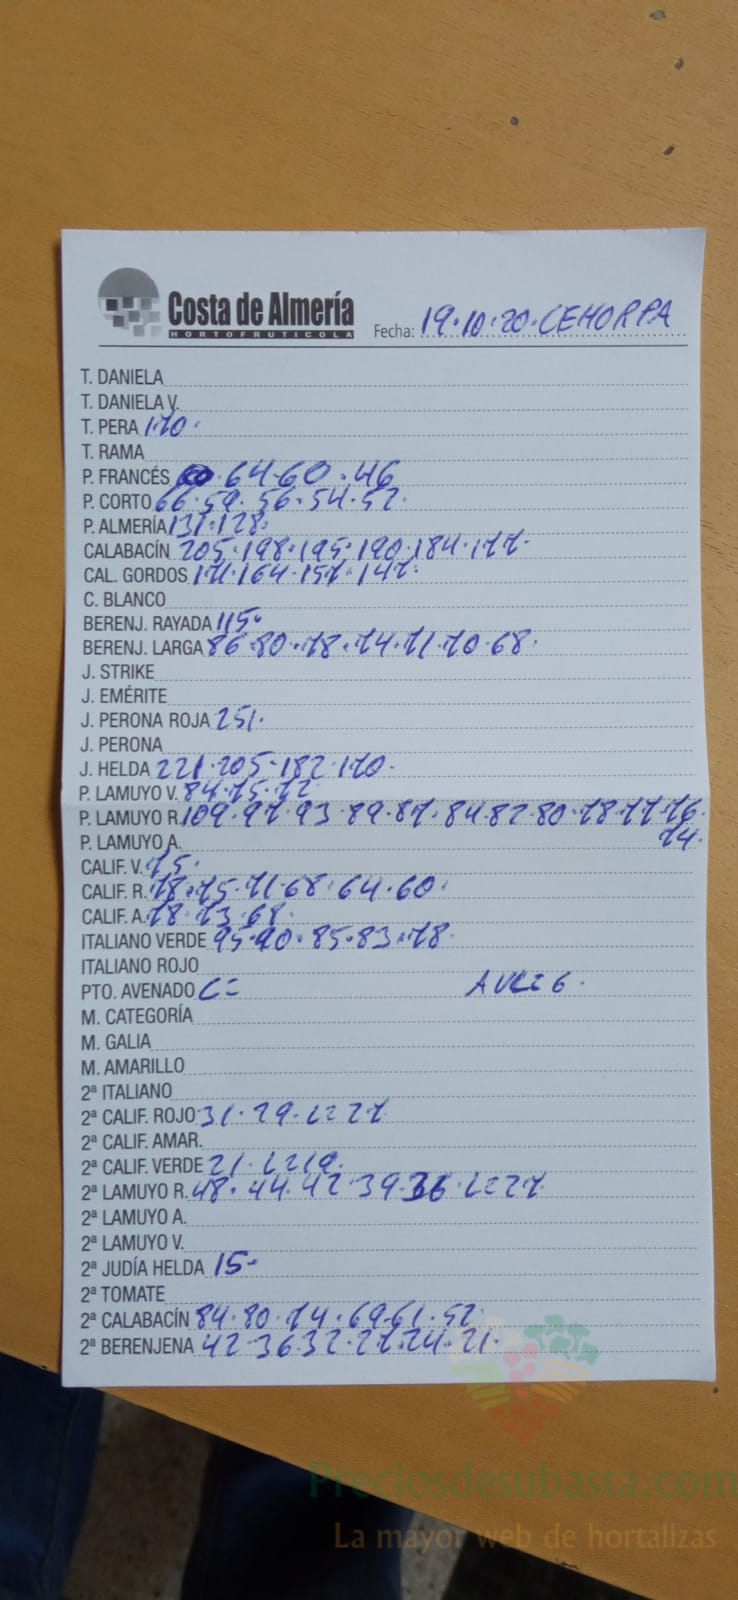 Costa de Almería
HORTOFRUTICOLA
Fecha: 19.10.20.CEHORPA
T. DANIELA
T. DANIELA V.
T. PERA 170.
T. RAMA
P. FRANCÉS 64.60.46
P. CORTO 66.59.56.54.52.
P. ALMERÍA 131.128.
CALABACÍN 205.198.195.190.184.177.
CAL. GORDOS 171.164.157.147.
C. BLANCO
BERENJ. RAYADA 115.
BERENJ. LARGA 86.80.78.74.71.70.68.
J. STRIKE
J. EMÉRITE
J. PERONA ROJA 251.
J. PERONA
J. HELDA 221.205.182.170.
P. LAMUYO V. 84.75.72
P. LAMUYO R. 109.97.93.89.87.84.82.80.78.77.76.
P. LAMUYO A. 74.
CALIF. V. 75.
CALIF. R. 78.75.71.68.64.60.
CALIF. A. 78.73.68.
ITALIANO VERDE 95.90.85.83.78.
ITALIANO ROJO
PTO. AVENADO C=
M. CATEGORÍA
M. GALIA
M. AMARILLO
2ª ITALIANO
2ª CALIF. ROJO 31.29.L=27
2ª CALIF. AMAR.
2ª CALIF. VERDE 21.L=19.
2ª LAMUYO R. 48.44.42.39.36.L=27.
2ª LAMUYO A.
2ª LAMUYO V.
2ª JUDÍA HELDA 15.
2ª TOMATE
2ª CALABACÍN 84.80.74.69.61.52.
2ª BERENJENA 42.36.32.27.24.21.
Preciosdesubasta.com
La mayor web de hortalizas